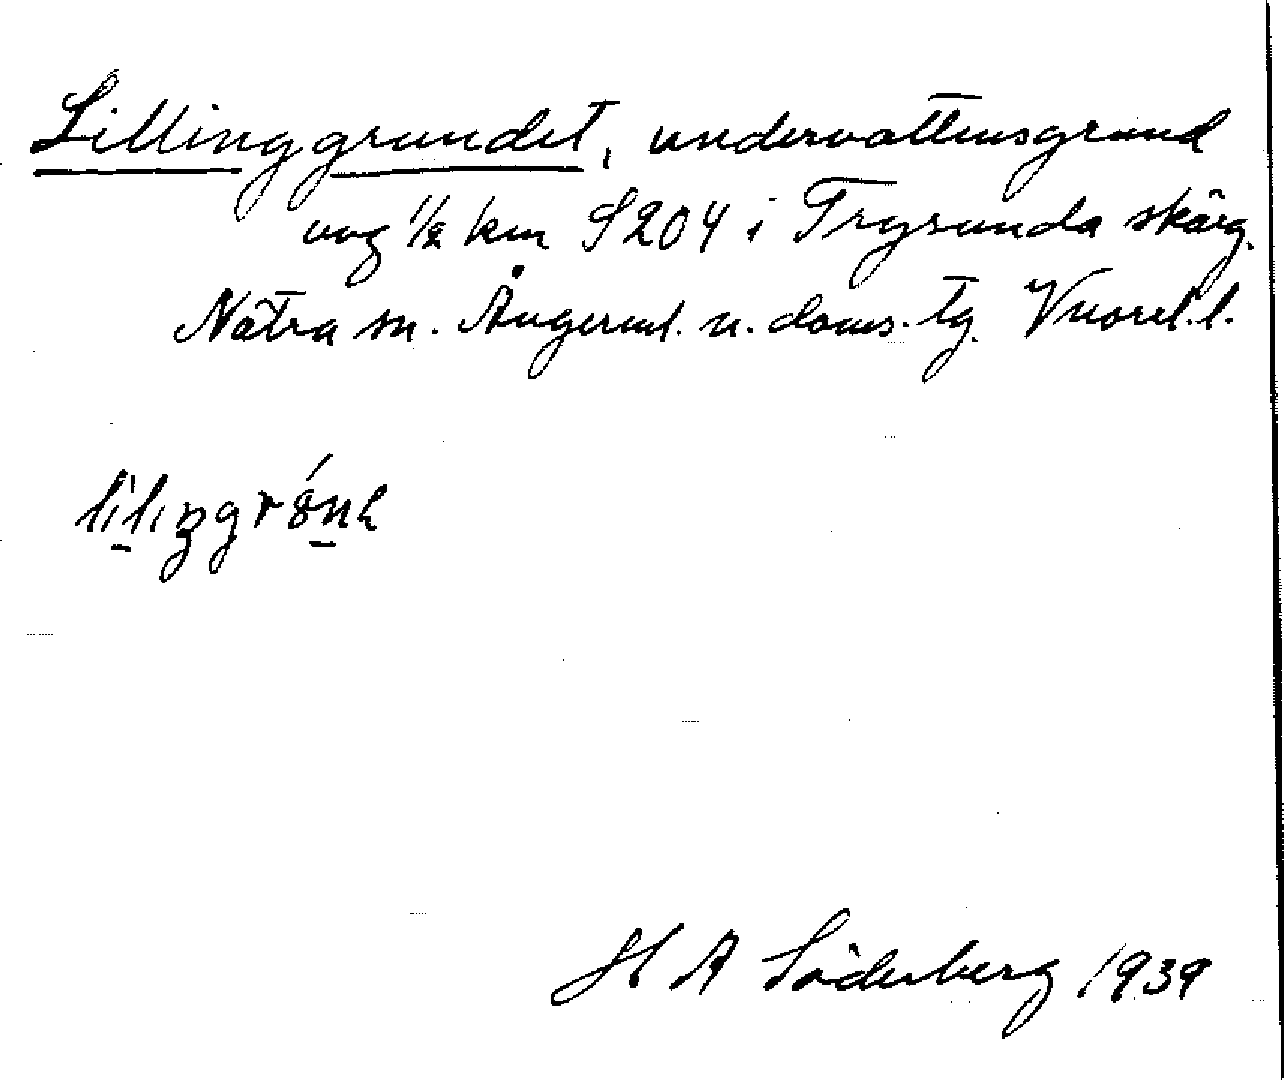 Lillinggrundet, undervattensgrund
ung 1/2 km S 204 i Trysunda skärg.
Nätra sn. Ångerml. n. doms. tg. Vnorel. l.
H A Söderberg 1939